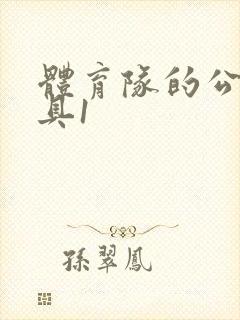 體育隊的公
具1
孫翠鳳